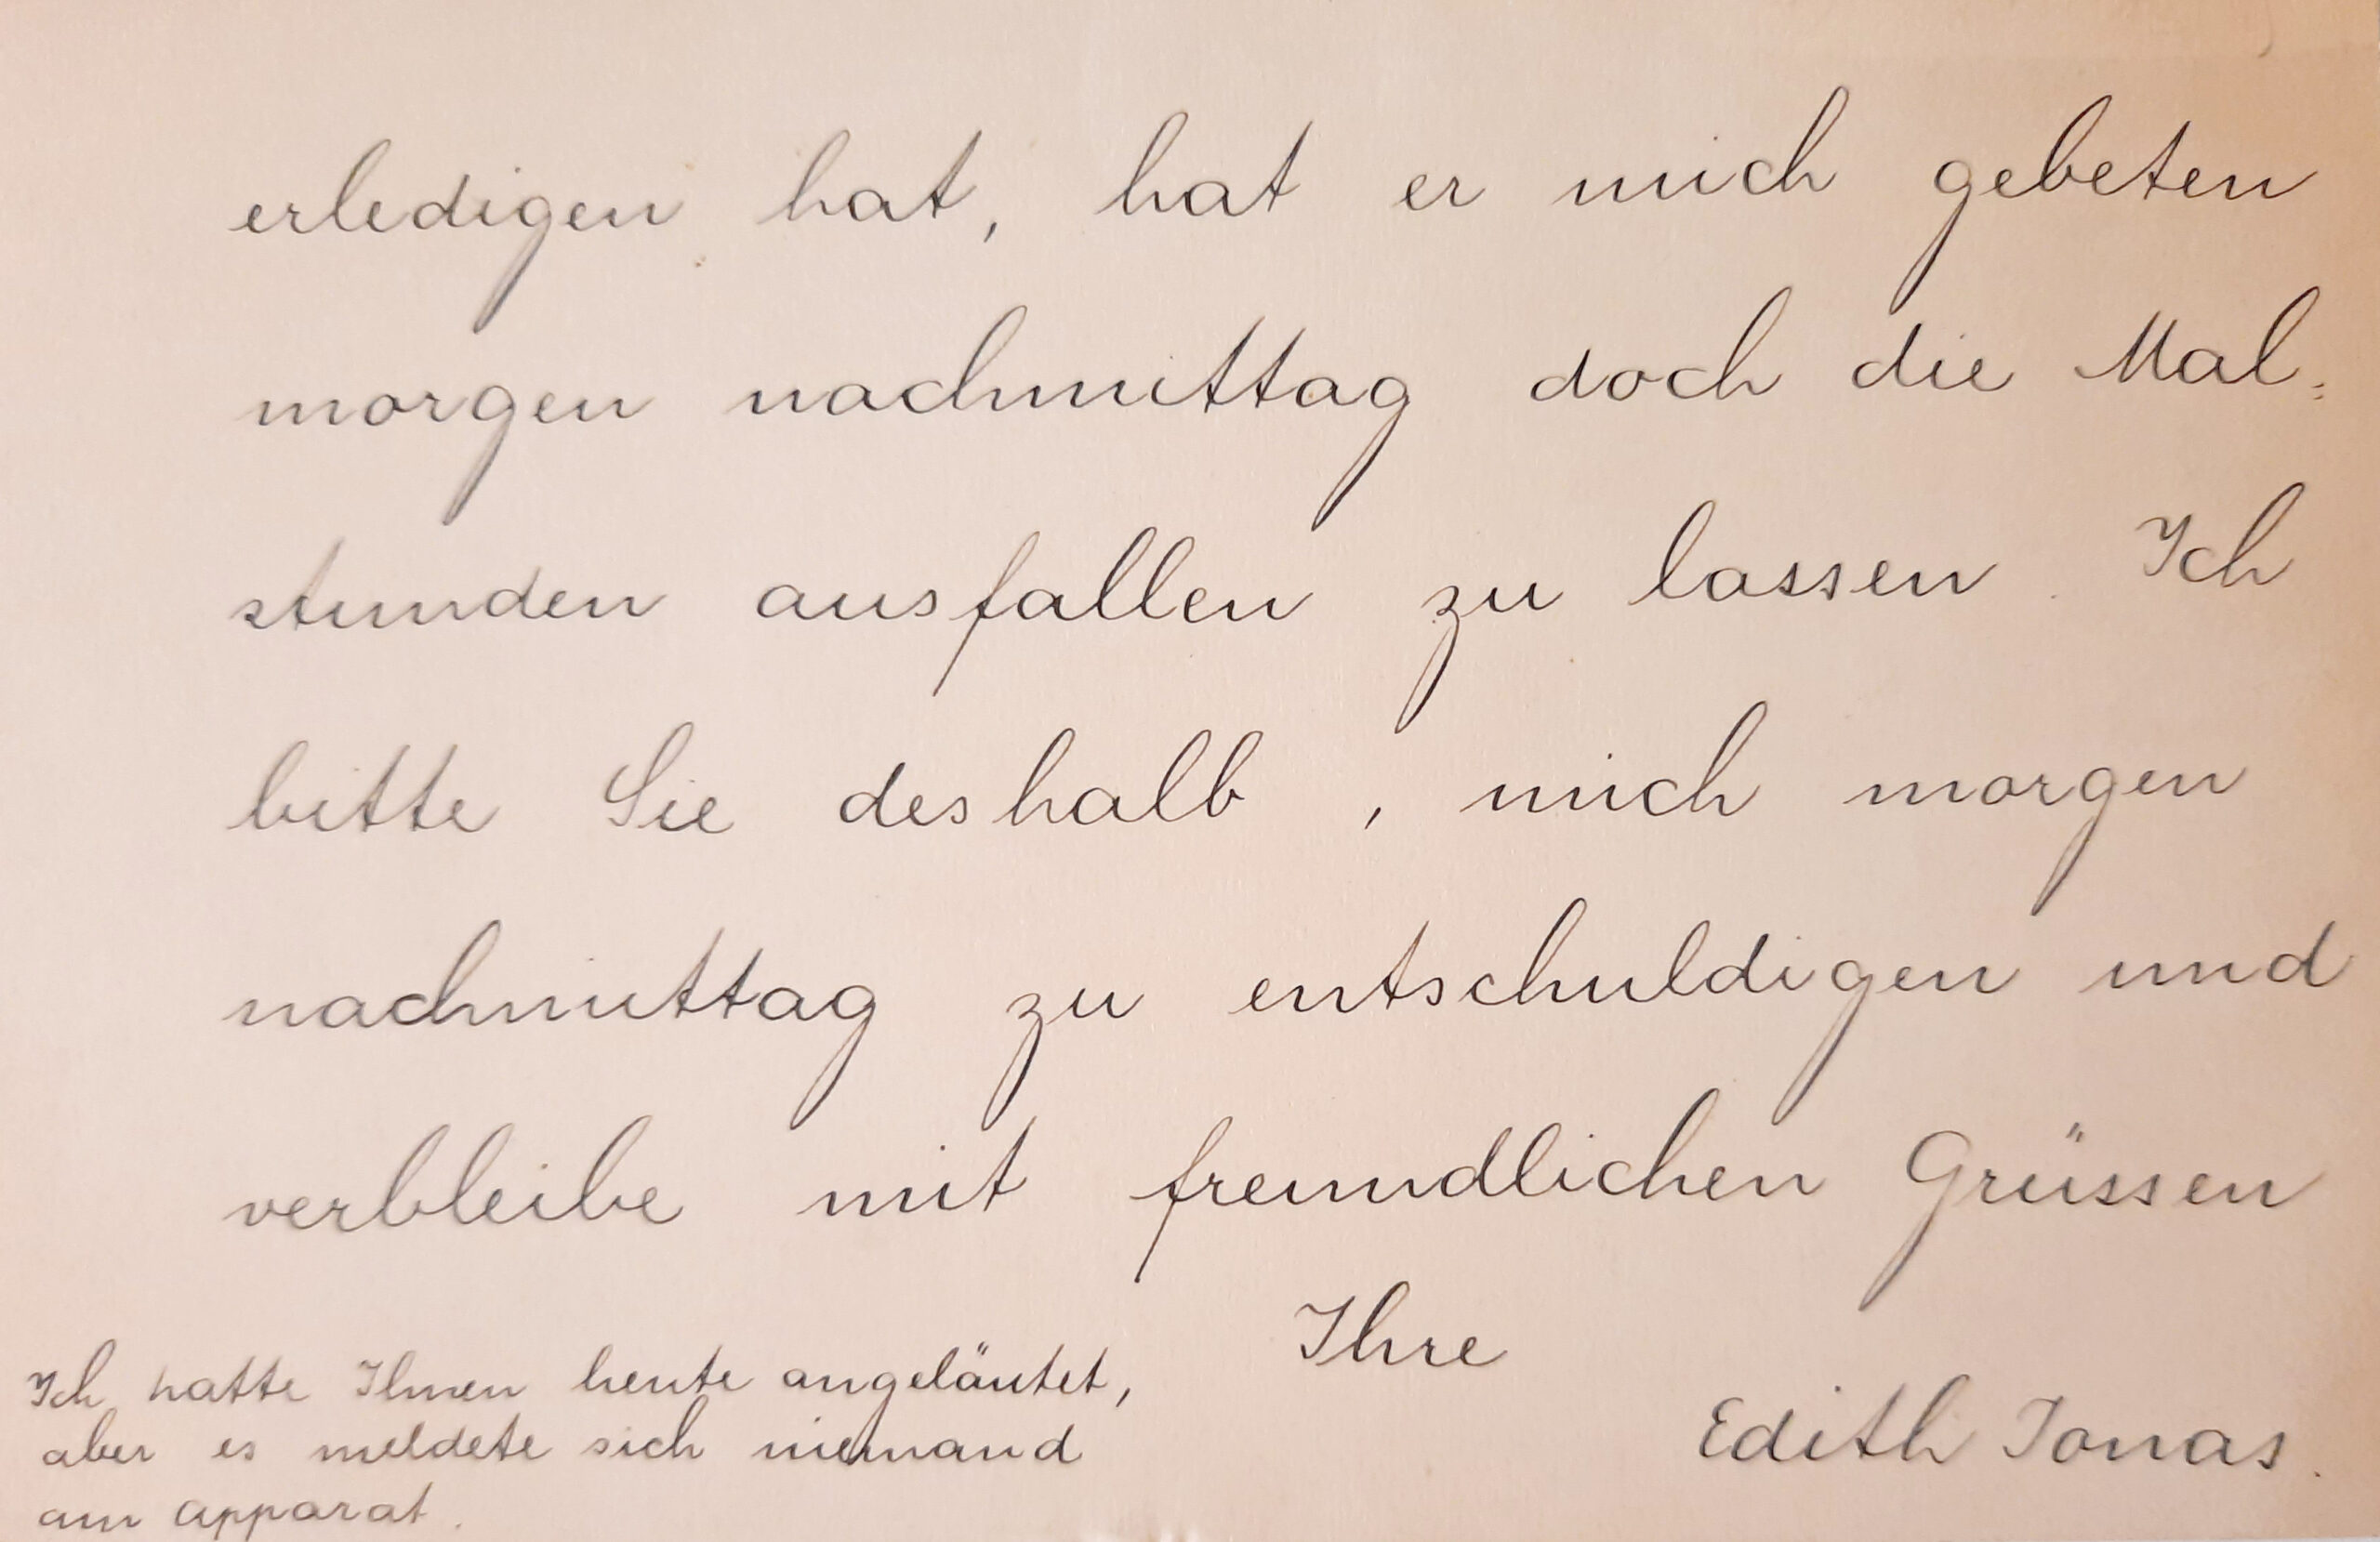 erledigen hat, hat er mich gebeten
morgen nachmittag doch die Mal=
stunden ausfallen zu lassen. Ich
bitte Sie deshalb, mich morgen
nachmittag zu entschuldigen und
verbleibe mit freundlichen Grüssen
Ihre
Edith Jonas.
Ich hatte Ihnen heute angeläutet,
aber es meldete sich niemand
am Apparat.